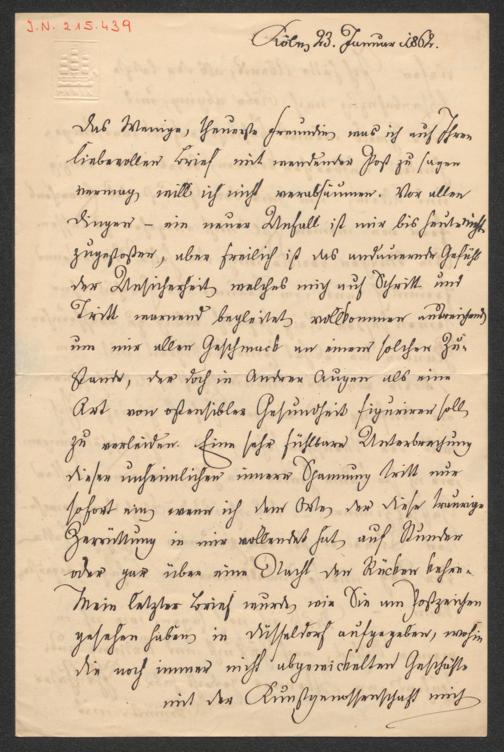 J.N. 215.439
Köln, 23. Januar 1862.
Das Wenige, theuerste Freundin, was ich auf Ihren
liebevollen Brief mit wendender Post zu sagen
vermag, will ich nicht verabsäumen. Vor allen
Dingen – ein neuer Unfall ist mir bis heute nicht
zugestoßen, aber freilich ist das andauernde Gefühl
der Unsicherheit, welches mich auf Schritt und
Tritt warnend begleitet, vollkommen ausreichend,
um mir allen Geschmack an einem solchen Zu-
stande, der doch in Andrer Augen als eine
Art von ostensibler Gesundheit figuriren soll,
zu verleiden. Eine sehr fühlbare Unterbrechung
dieser unheimlichen innern Spannung tritt nur
sofort ein, wenn ich dem Orte, der diese traurige
Zerrüttung in mir vollendet hat, auf Stunden
oder gar über eine Nacht den Rücken kehre.
Mein letzter Brief wurde, wie Sie am Postzeichen
gesehen haben, in Düsseldorf aufgegeben, wohin
die noch immer nicht abgewickelten Geschäfte
mit der Kunstgenossenschaft mich